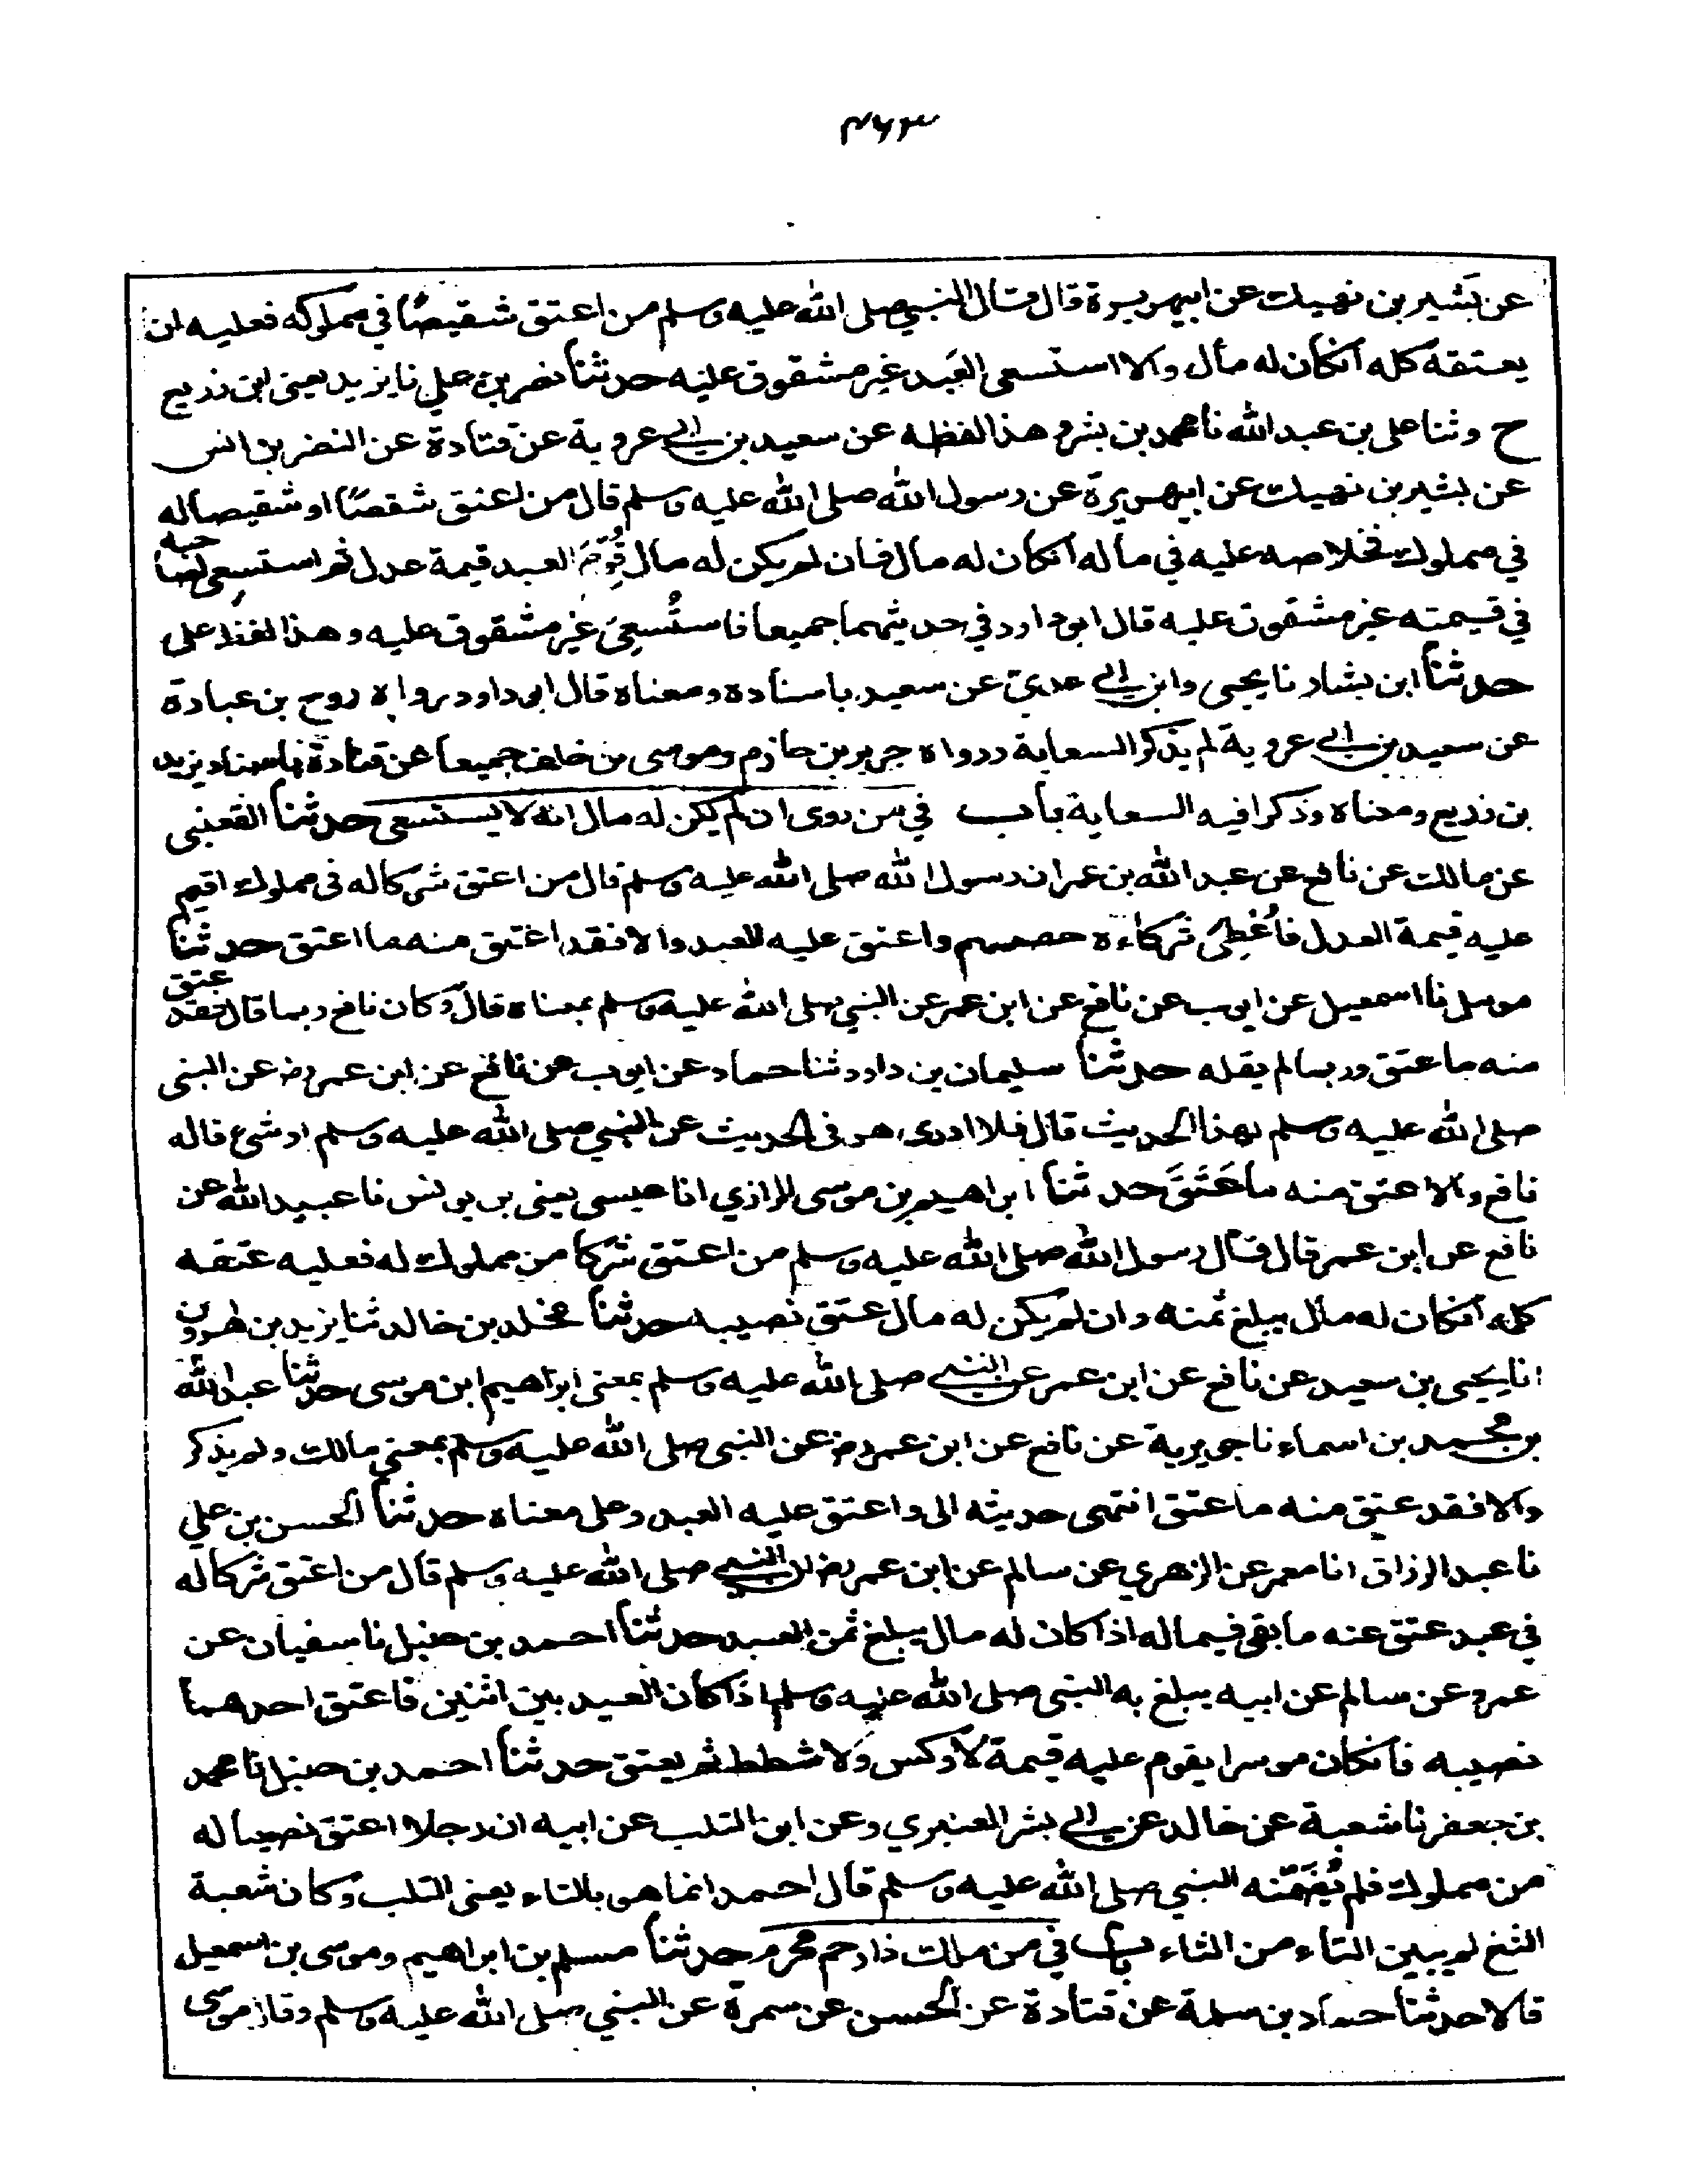 ٤٦٣
عن بشير بن نهيك عن ابيهريرة قال قال النبي صلى الله عليه وسلم من اعتق شقيصًا في مملوكه فعليه ان
يعتقه كله انكان له مال والا استسعى العبد غير مشقوق عليه حدثنا نصر بن علي نا يزيد يعنى ابن زريع
ح وثنا على بن عبد الله نا محمد بن بشر وهذا لفظه عن سعيد بن ابي عروبة عن قتادة عن النضر بن انس
عن بشير بن نهيك عن ابيهريرة عن رسول الله صلى الله عليه وسلم قال من اعتق شقصًا او شقيصا له
في مملوك فخلاصه عليه في ماله انكان له مال فان لم يكن له مال قُوِّمَ العبد قيمة عدل ثم استسعى لصاحبه
في قيمته غير مشقوق عليه قال ابو داود في حديثهما جميعا فاستُسعِيَ غير مشقوق عليه وهذا لفظ على
حدثنا ابن بشار نا يحيى وابن ابي عدي عن سعيد باسناده ومعناه قال ابو داود رواه روح بن عبادة
عن سعيد بن ابي عروبة لم يذكر السعاية ورواه جرير بن حازم وموسى بن خلف جميعا عن قتادة باسناد يزيد
بن زريع ومعناه وذكرا فيه السعاية باب في من روى ان لم يكن له مال انه لا يستسعى حدثنا القعنبى
عن مالك عن نافع عن عبد الله بن عمر ان رسول الله صلى الله عليه وسلم قال من اعتق شركا له فى مملوك اقيم
عليه قيمة العدل فاُعْطِىَ شركاءه حصصهم واعتق عليه العبد والا فقد اعتق منه ما اعتق حدثنا
مومل نا اسمعيل عن ايوب عن نافع عن ابن عمر عن النبي صلى الله عليه وسلم بمعناه قال وكان نافع ربما قال فقد عتق
منه ما عتق وربما لم يقله حدثنا سليمان بن داود ثنا حماد عن ايوب عن نافع عن ابن عمر رض عن النبى
صلى الله عليه وسلم بهذا الحديث قال فلا ادرى هو فى الحديث عن النبي صلى الله عليه وسلم او شئ قاله
نافع والا عتق منه ما عَتَقَ حدثنا ابراهيم بن موسى الرازي انا عيسى يعنى بن يونس نا عبيد الله عن
نافع عن ابن عمر قال قال رسول الله صلى الله عليه وسلم من اعتق شركا من مملوك له فعليه عتقه
كله انكان له مال يبلغ ثمنه وان لم يكن له مال عتق نصيبه حدثنا مخلد بن خالد ثنا يزيد بن هرون
انا يحيى بن سعيد عن نافع عن ابن عمر عن النبي صلى الله عليه وسلم بمعنى ابراهيم ابن موسى حدثنا عبد الله
بن محمد بن اسماء نا جويرية عن نافع عن ابن عمر رض عن النبى صلى الله عليه وسلم بمعنى مالك ولم يذكر
والا فقد عتق منه ما عتق انتهى حديثه الى واعتق عليه العبد وعلى معناه حدثنا الحسن بن علي
نا عبد الرزاق انا معمر عن الزهري عن سالم عن ابن عمر رض ان النبي صلى الله عليه وسلم قال من اعتق شركا له
في عبد عتق عنه ما بقى فيماله اذا كان له مال يبلغ ثمن العبد حدثنا احمد بن حنبل نا سفيان عن
عمرو عن سالم عن ابيه يبلغ به النبى صلى الله عليه وسلم اذا كان العبد بين اثنين فاعتق احدهما
نصيبه فانكان موسرا يقوم عليه قيمة لا وكس ولا شطط ثم يعتق حدثنا احمد بن حنبل نا محمد
بن جعفر نا شعبة عن خالد عن ابي بشر العنبري وعن ابن التلب عن ابيه ان رجلا اعتق نصيبا له
من مملوك فلم يُضَمِّنه النبي صلى الله عليه وسلم قال احمد انما هو بالتاء يعنى التلب وكان شعبة
الثغ لم يبين التاء من الثاء باب في من ملك ذا رحم محرم حدثنا مسلم بن ابراهيم وموسى بن اسمعيل
قالا حدثنا حماد بن سلمة عن قتادة عن الحسن عن سمرة عن النبي صلى الله عليه وسلم وقال موسى